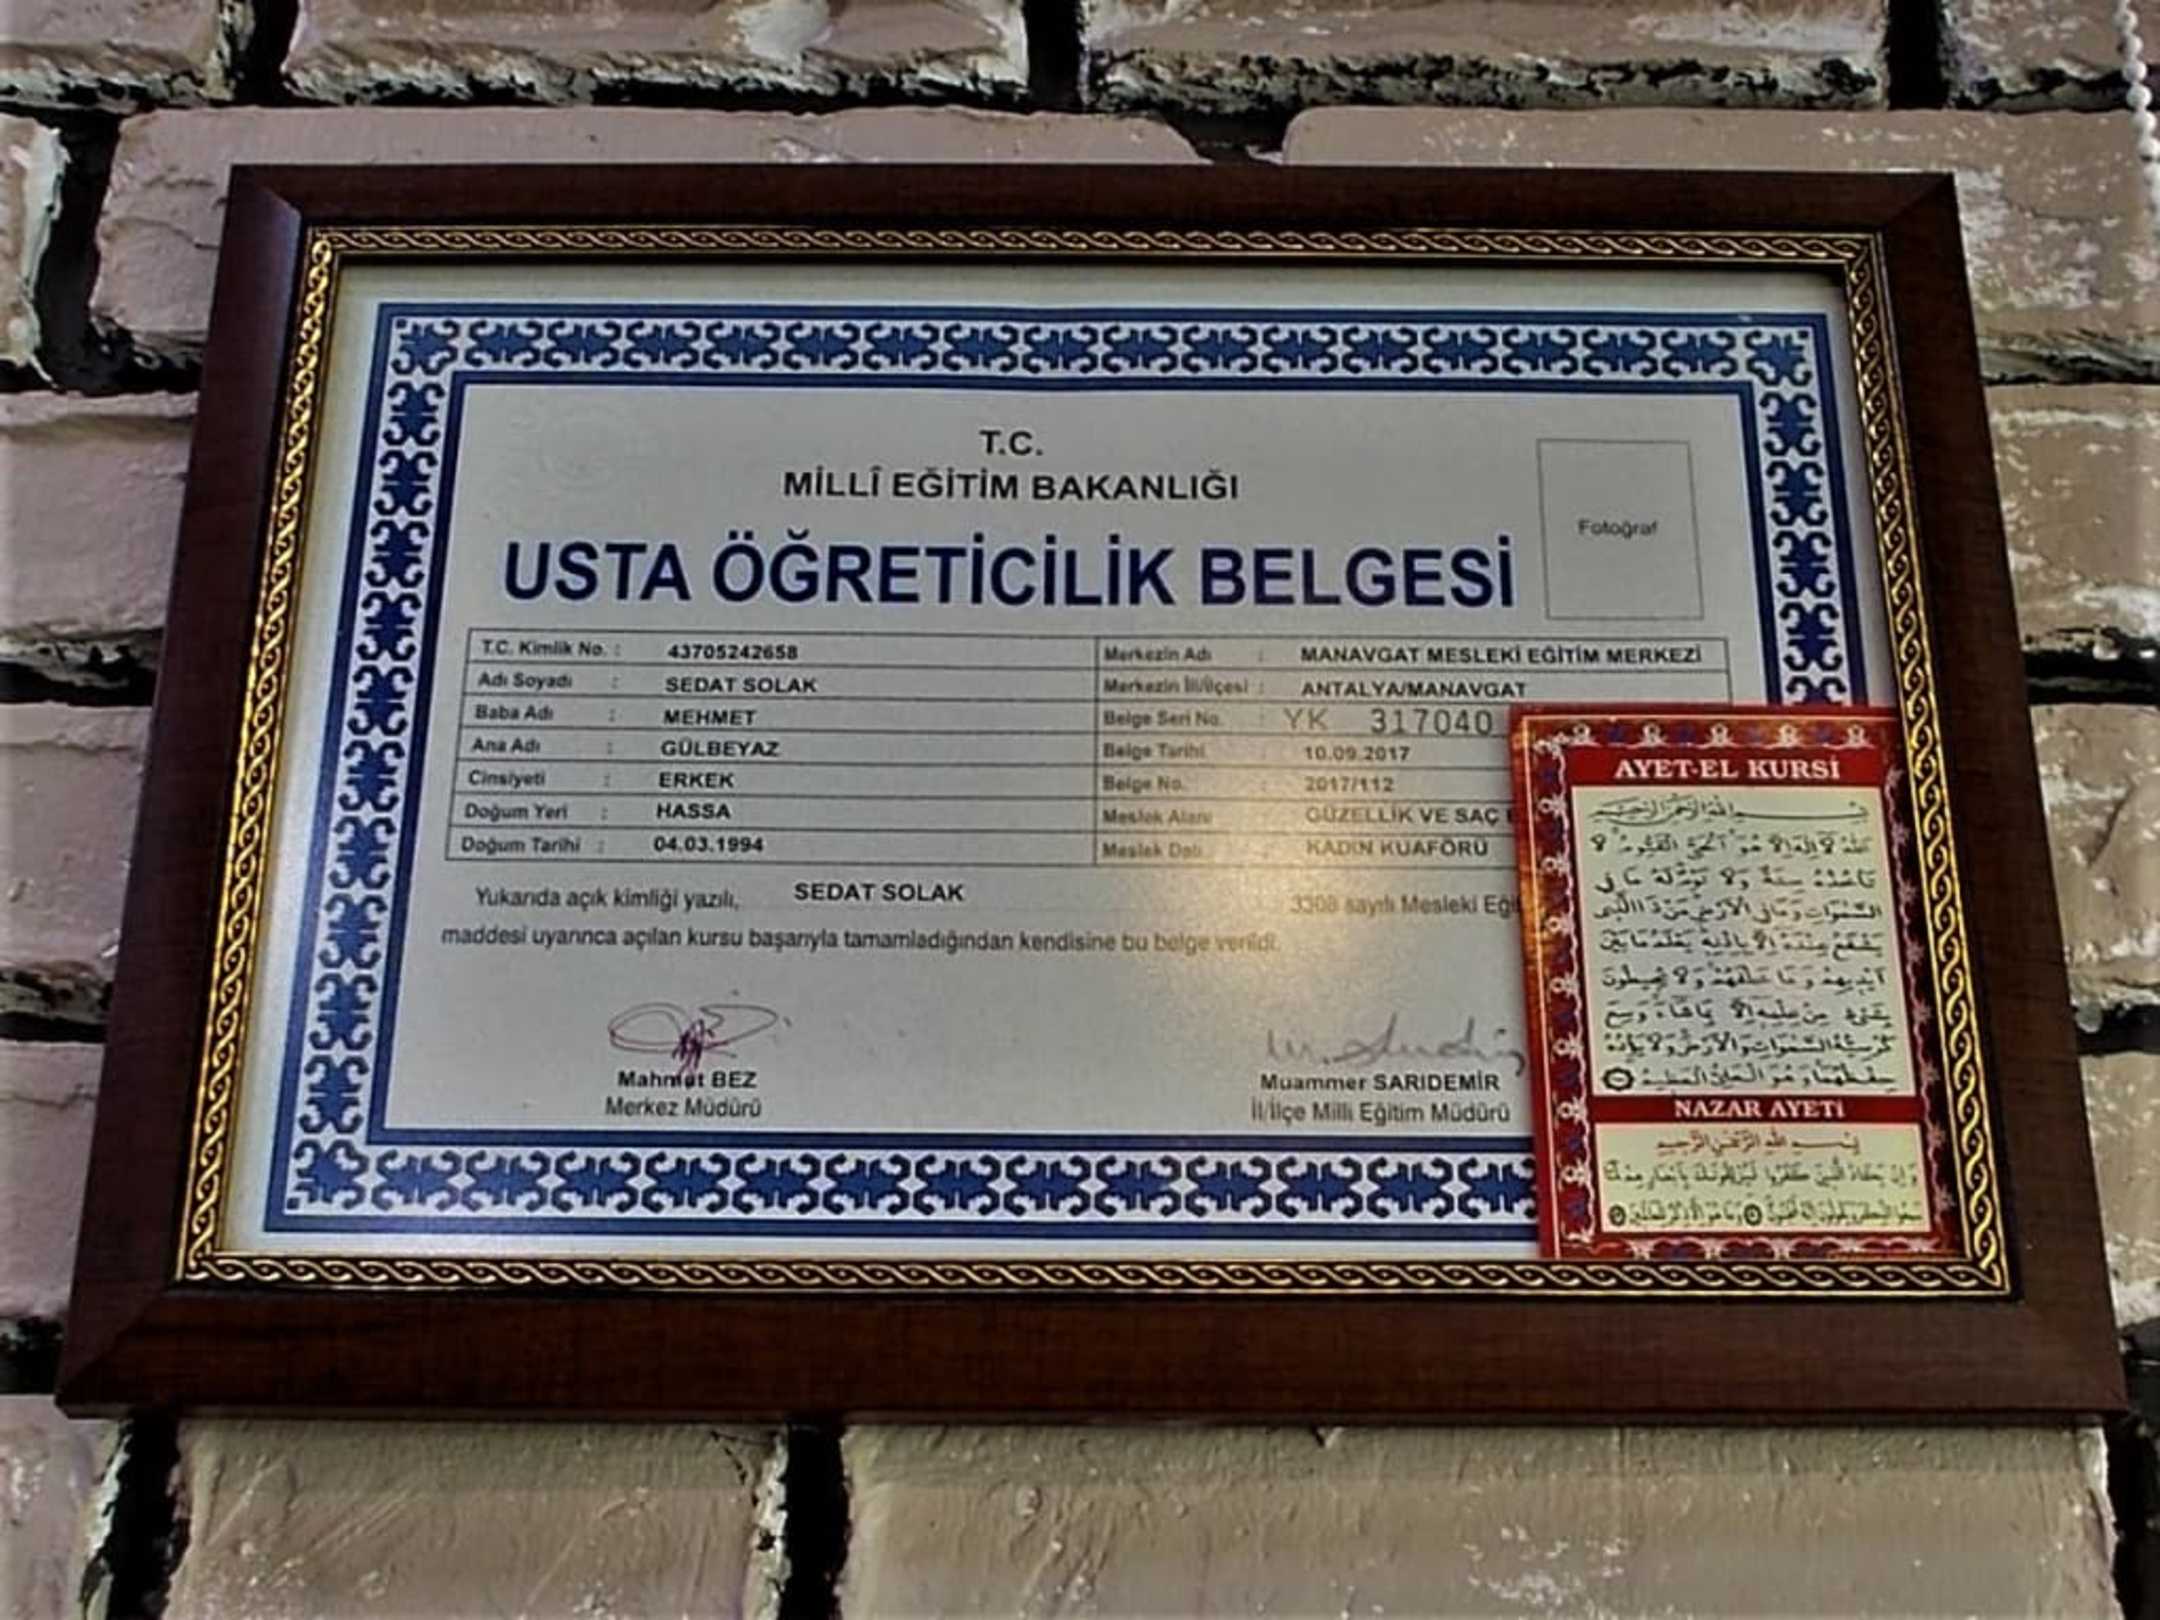 T.C.
MİLLÎ EĞİTİM BAKANLIĞI
USTA ÖĞRETİCİLİK BELGESİ
Fotoğraf
T.C. Kimlik No. : 43705242658
Adı Soyadı : SEDAT SOLAK
Baba Adı : MEHMET
Ana Adı : GÜLBEYAZ
Cinsiyeti : ERKEK
Doğum Yeri : HASSA
Doğum Tarihi : 04.03.1994
Merkezin Adı : MANAVGAT MESLEKİ EĞİTİM MERKEZİ
Merkezin İli/İlçesi : ANTALYA/MANAVGAT
Belge Seri No. : YK 317040
Belge Tarihi : 10.09.2017
Belge No. : 2017/112
Meslek Alanı : GÜZELLİK VE SAÇ
Meslek Dalı : KADIN KUAFÖRÜ
Yukarıda açık kimliği yazılı, SEDAT SOLAK 3308 sayılı Mesleki Eği
maddesi uyarınca açılan kursu başarıyla tamamladığından kendisine bu belge verildi.
Mahmut BEZ
Merkez Müdürü
Muammer SARIDEMİR
İl/İlçe Milli Eğitim Müdürü
AYET-EL KURSİ
بسم الله الرحمن الرحيم
الله لا اله الا هو الحي القيوم لا
تأخذه سنة ولا نوم له ما في
السموات وما في الارض من ذا الذي
يشفع عنده الا باذنه يعلم ما بين
ايديهم وما خلفهم ولا يحيطون
بشيء من علمه الا بما شاء وسع
كرسيه السموات والارض ولا يؤده
حفظهما وهو العلي العظيم
NAZAR AYETİ
بسم الله الرحمن الرحيم
وان يكاد الذين كفروا ليزلقونك بابصارهم لما
سمعوا الذكر ويقولون انه لمجنون وما هو الا ذكر للعالمين